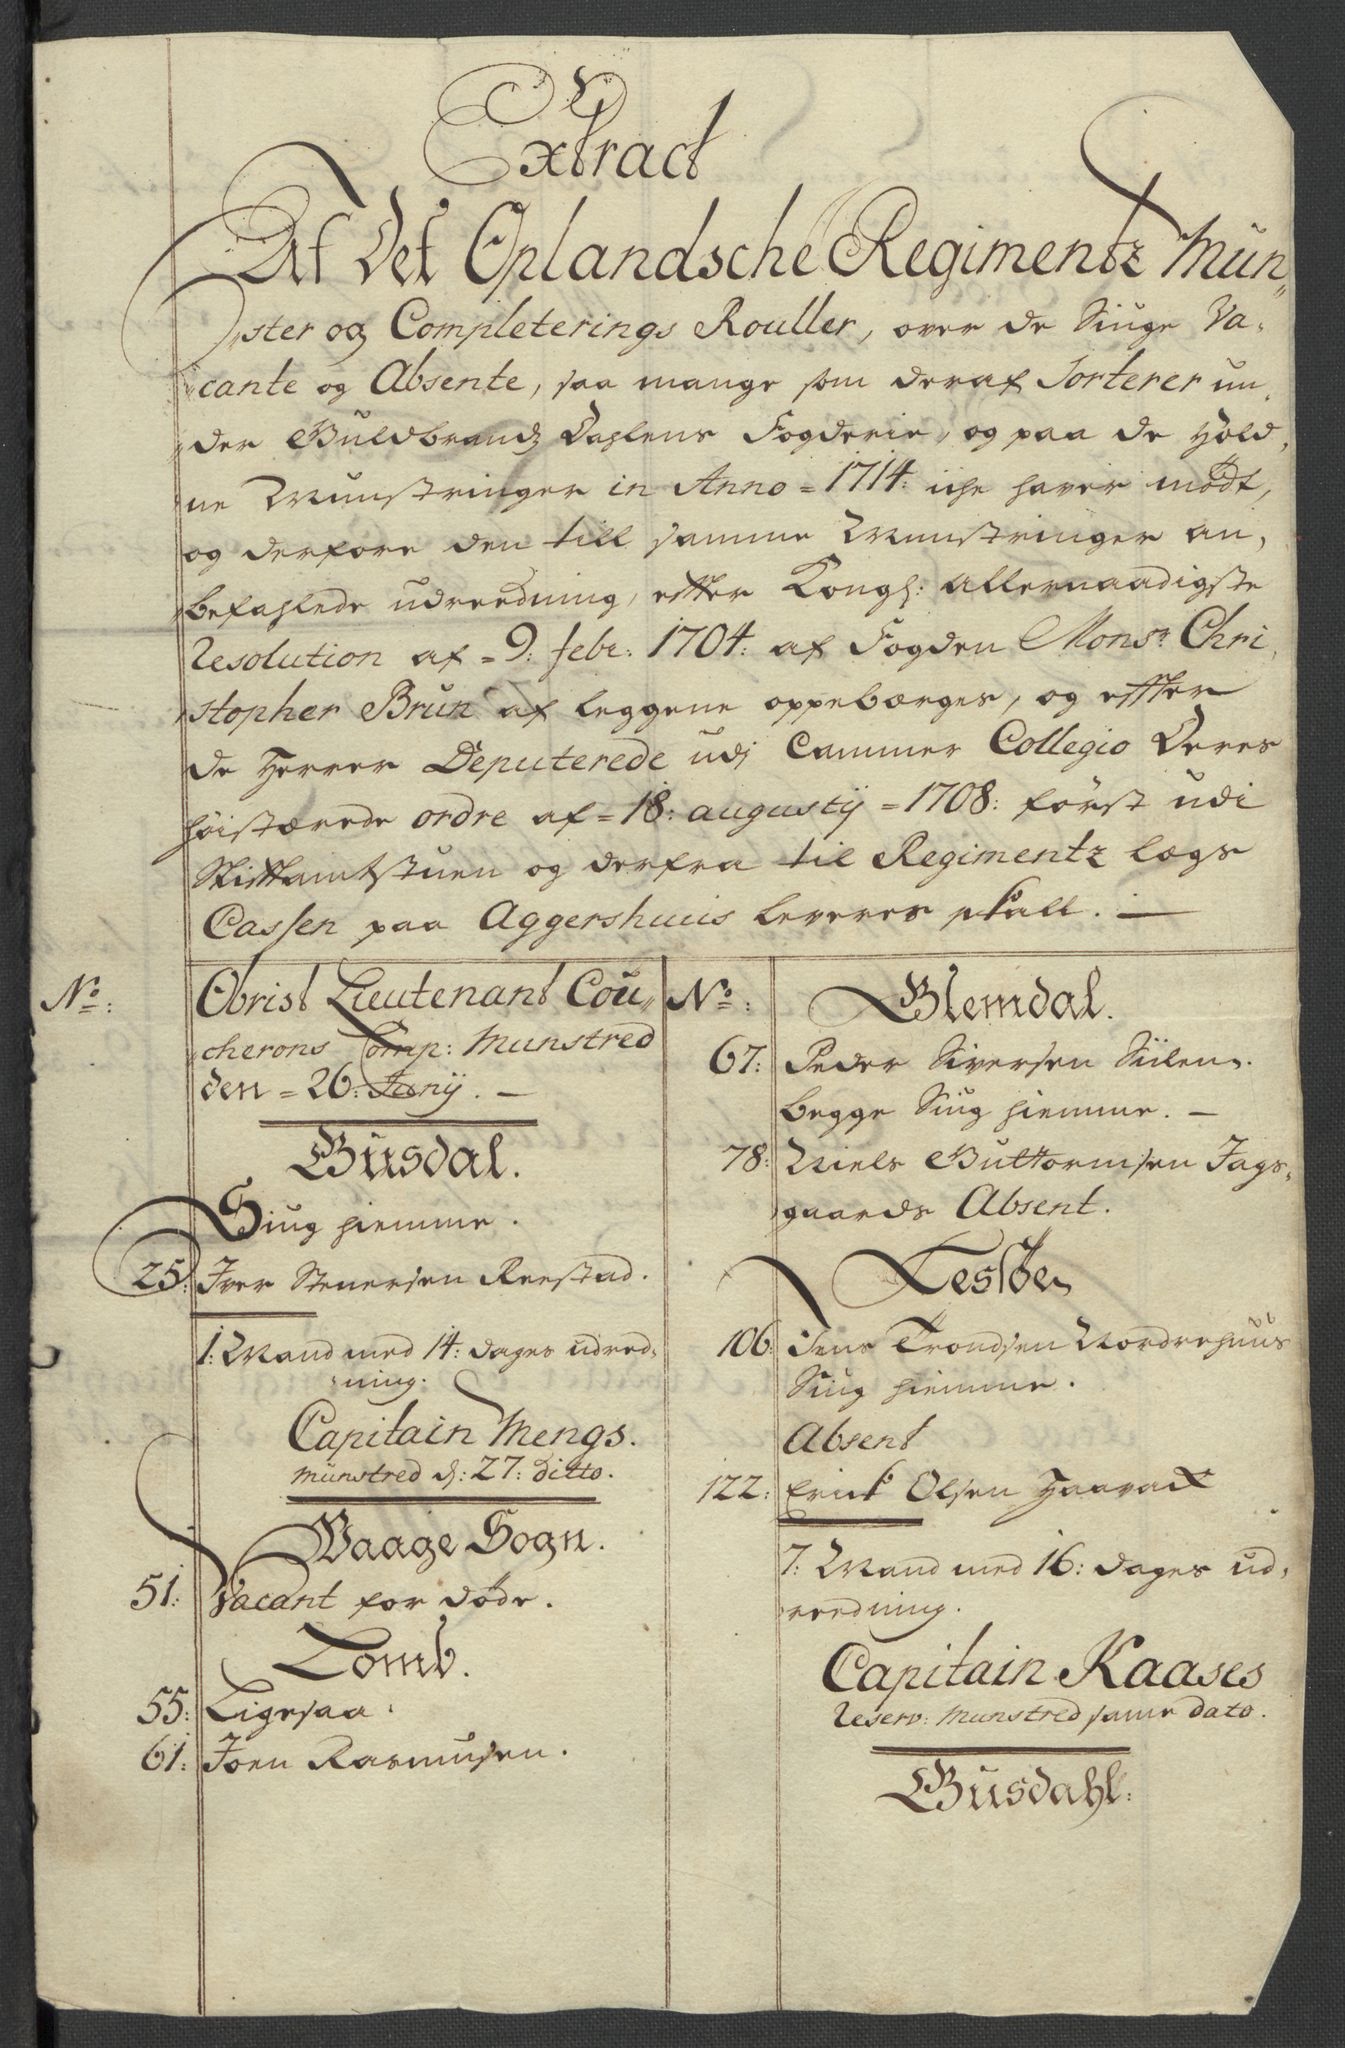 Extract
Af Det Oplandsche Regimentz Mün„
„ster og Completerings Rouller, over de Siuge Va„
„cante og Absente, saa mange som deraf Sorterer un„
„der Guldbrandz Dahlens Fogderie, og paa de Hold„
„ne Munstringer in Anno = 1714: iche haver mødt,
og derfore den till samme Munstringer an„
„befahlede udreedning, effter Kongl: allernaadigste
Resolution af = 9: febr: 1704: af Fogden Monsr: Chri„
„stopher Brun af leggene oppebærges, og effter
de Herrer Deputerede udj Cammer Collegio Deres
høistærede ordre af = 18: augustij = 1708: først udi
Stifftamtstuen og derfra til Regimentz lægs
Cassen paa Aggershuus leveres skall. —
No:
Obrist Lieutenant Cou„
„cherons Comp: Munstred
den = 26: Junij. —
Güsdal.
Siug hiemme.
25: Iver Stenersen Reestad.
1: Mand med 14: dages udred„
„ning.
Capitain Mengs.
münstred d: 27: ditto.
Vaage Sogn.
51: Vacant for døde.
Lomb.
55: Ligesaa.
61: Joen Rasmusen.
No:
Slemdal.
67: Peder Siversen Siilen.
begge Siug hiemme. —
78: Niels Guttormsen Jags„
„gaards Absent.
Lesiöe
106: Jens Trondsen Nordrehuus
Siug hiemme.
Absent
122: Erick Olsen
7: Mand med 16: dages ud„
„reedning.
Capitain Kaases
Reserv: Munstred same dato.
Güsdahl: